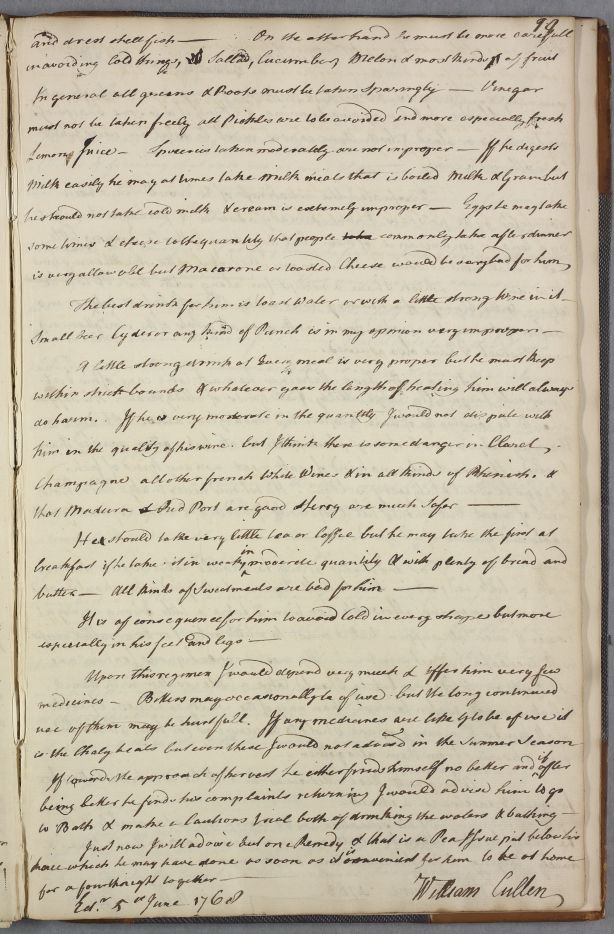 99
and drest shell fish — On the other hand he must be more carefull
in avoiding Cold things, Sallad, Cucumber, Melon & most kinds of fruit
In general all greens & Roots must be taken sparingly — Vinegar
must not be taken freely all Pickles are to be avoided and more especially fresh
Lemon Juice — Spiceries taken moderately are not improper — If he digests
Milk easily he may at times take Milk meals that is boiled Milk & Grain but
he should not take cold milk & cream is extremely improper — Eggs he may take
some times & cheese to the quantity that people take commonly take after dinner
is very allowable but Macarone or toasted Cheese would be very bad for him,
The best drink for him is toast Water or with a little strong Wine in it —
Small Beer Cyder or any kind of Punch is in my opinion very improper —
A little strong drink at Every meal is very proper but he must keep
within strict bounds & whatever goes the length of heating him will always
do harm. If he is very moderate in the quantity I would not dispute with
him in the quality of his wine. but I think there is some danger in Claret,
Champagne all other french White Wines & in all kinds of Rhenish. &
that Madeira & Red Port are good Sherry are much Safer —
He should take very little tea or Coffee but he may take the first at
breakfast if he take it in weak, in moderate quantity & with plenty of bread and
butter — All kinds of Sweatmeats are bad for him —
It is of consequence for him to avoid Cold in every shape but more
especially in his feet and legs —
Upon this regimen I would depend very much & Offer him very few
medicines — Bitters may occasionally be of use but the long continued
use of them may be hurtfull. If any medicines are likely to be of use it
is the Chalybeats but even these I would not advise in the Summer Season
If towards the approach of harvest he either finds himself no better and if after
being better he finds his complaints returning I would advise him to go
to Bath & make a Cautious trial both of drinking the waters & bathing —
Just now I will advise but one Remedy & that is a Pea Issue put below his
knee which he may have done as soon as it is convenient for him to be at home
for a fourthnight together —
Edr. 5th June 1768 William Cullen